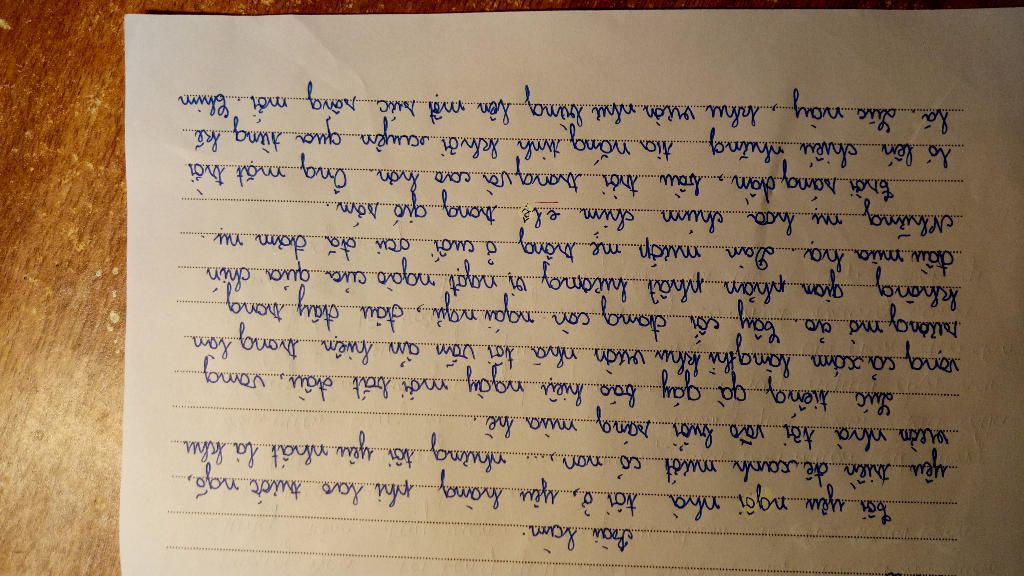 Bài làm.
Tôi yêu ngôi nhà tôi ở, yêu hàng phi lao trước ngõ,
yêu triền đê xanh mướt cỏ non,... nhưng tôi yêu nhất là khu
vườn nhà tôi vào buổi sáng mùa hè.
Lúc tiếng gà gáy báo hiệu ngày mới bắt đầu, vang
vọng cả xóm làng thì khu vườn nhà tôi vẫn ẩn hiện trong làn
sương mờ ảo. Cây cối đang còn ngái ngủ, đâu đây trong
không gian phảng phất hương vị ngọt ngào của quả chín
đầu mùa hạ. Dàn mướp mẹ trồng ở cuối sân đã đơm nụ.
Những nụ hoa chúm chím e ấp trong gió sớm.
Trời sáng dần, bầu trời trong và cao hơn. Ông mặt trời
ló lên chiếu những tia nắng tinh khôi xuyên qua từng kẽ
lá. Lúc này, khu vườn như bừng lên một sức sống mới. Chim